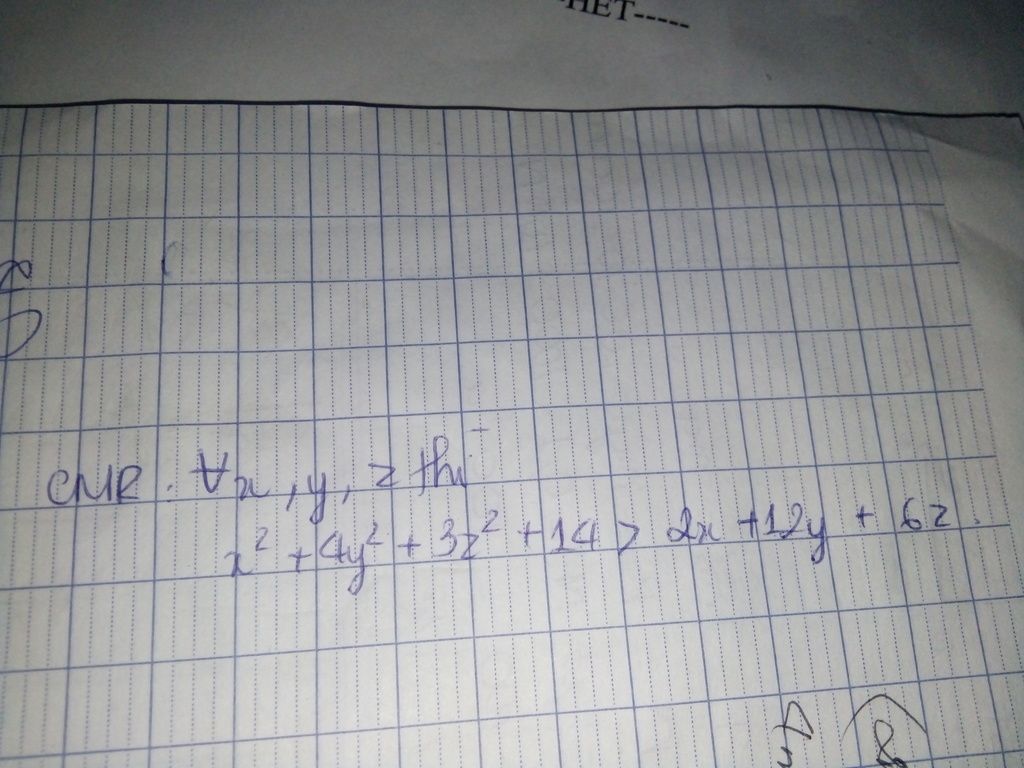 HẾT-----
CMR. ∀x, y, z thì
x² + 4y² + 3z² + 14 > 2x + 12y + 6z.